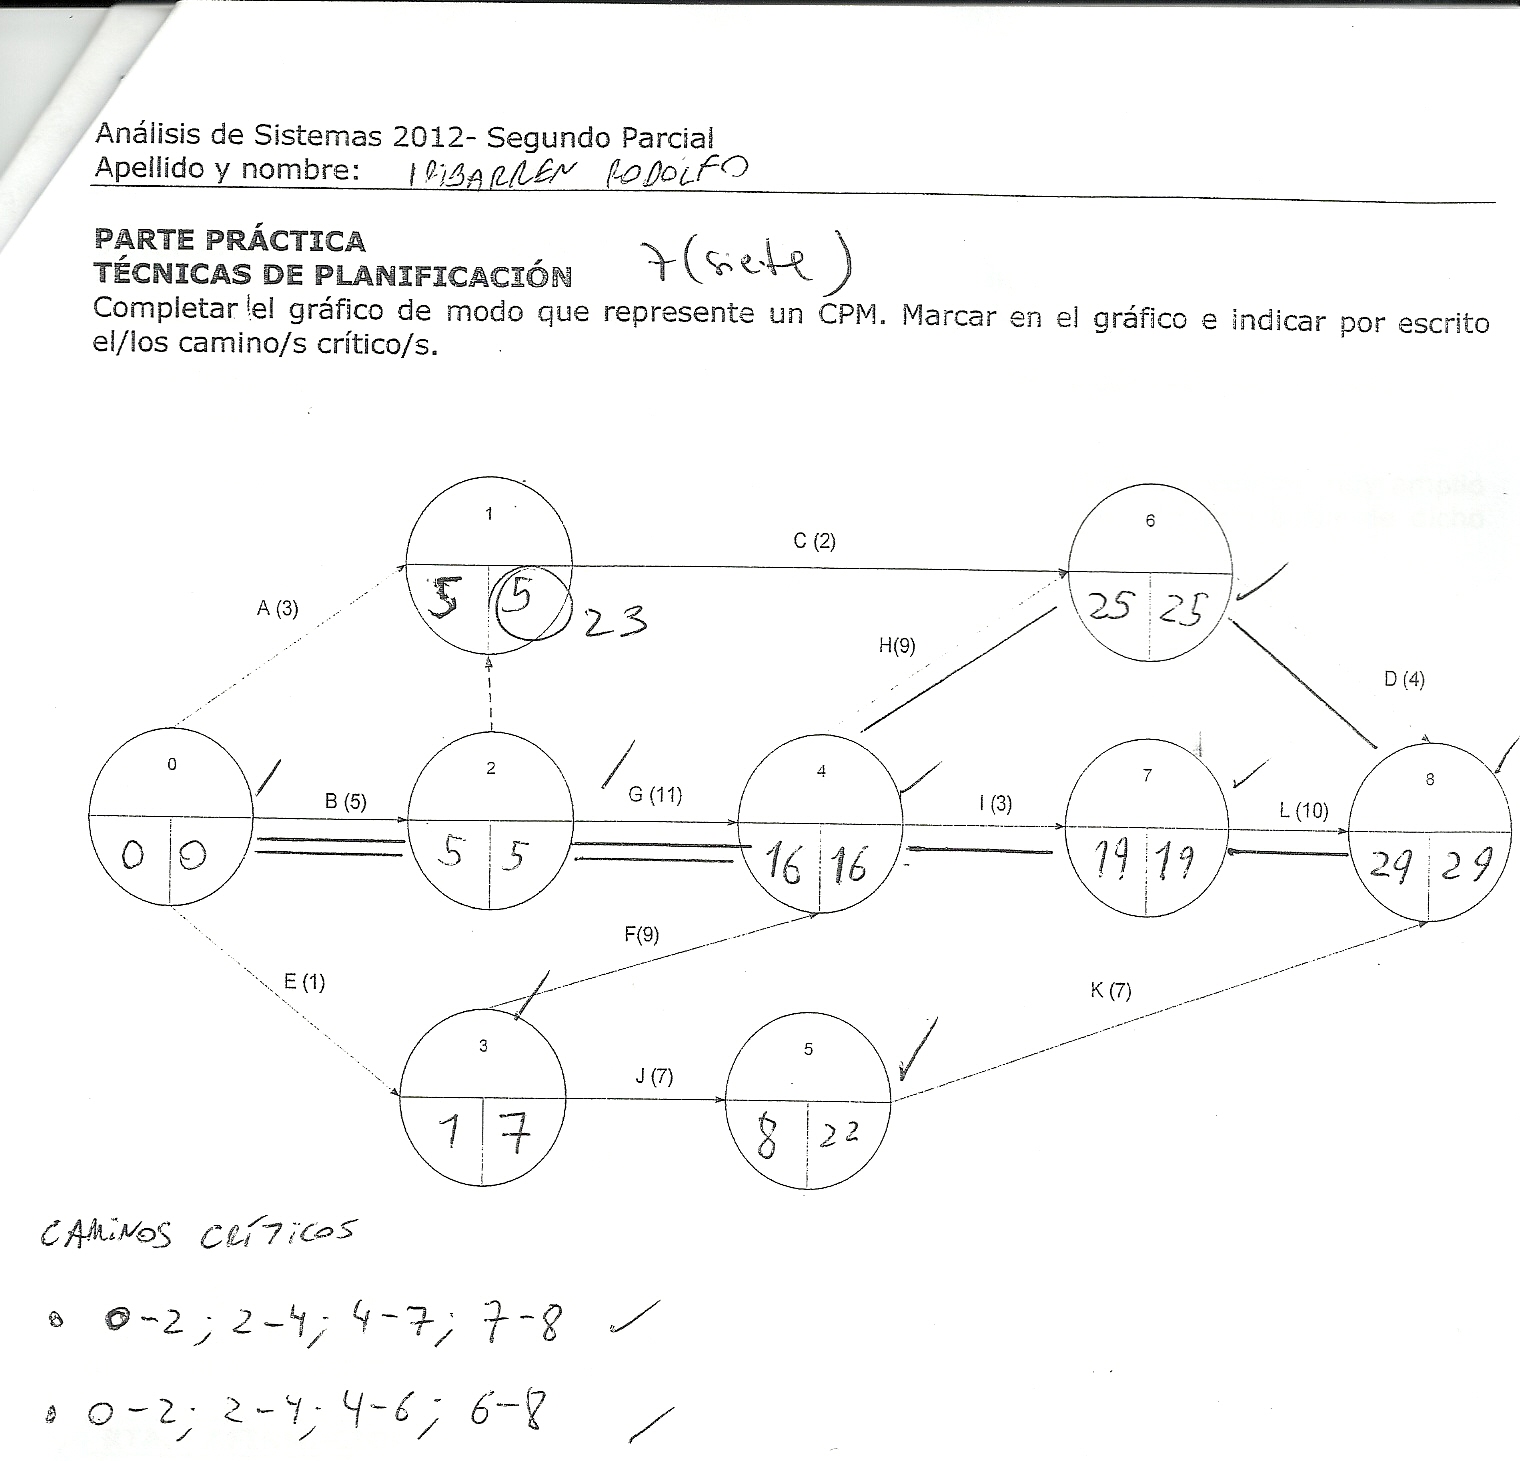 Análisis de Sistemas 2012- Segundo Parcial
Apellido y nombre: IRIBARREN RODOLFO
PARTE PRÁCTICA
7 (siete)
TÉCNICAS DE PLANIFICACIÓN
Completar el gráfico de modo que represente un CPM. Marcar en el gráfico e indicar por escrito
el/los camino/s crítico/s.
1
6
C (2)
5 5
23
25 25
A (3)
H(9)
D (4)
0
2
4
7
8
B (5)
G (11)
I (3)
L (10)
0 0
5 5
16 16
19 19
29 29
F(9)
E (1)
K (7)
3
5
J (7)
1 7
8 22
CAMINOS CRÍTICOS
0-2; 2-4; 4-7; 7-8
0-2; 2-4; 4-6; 6-8